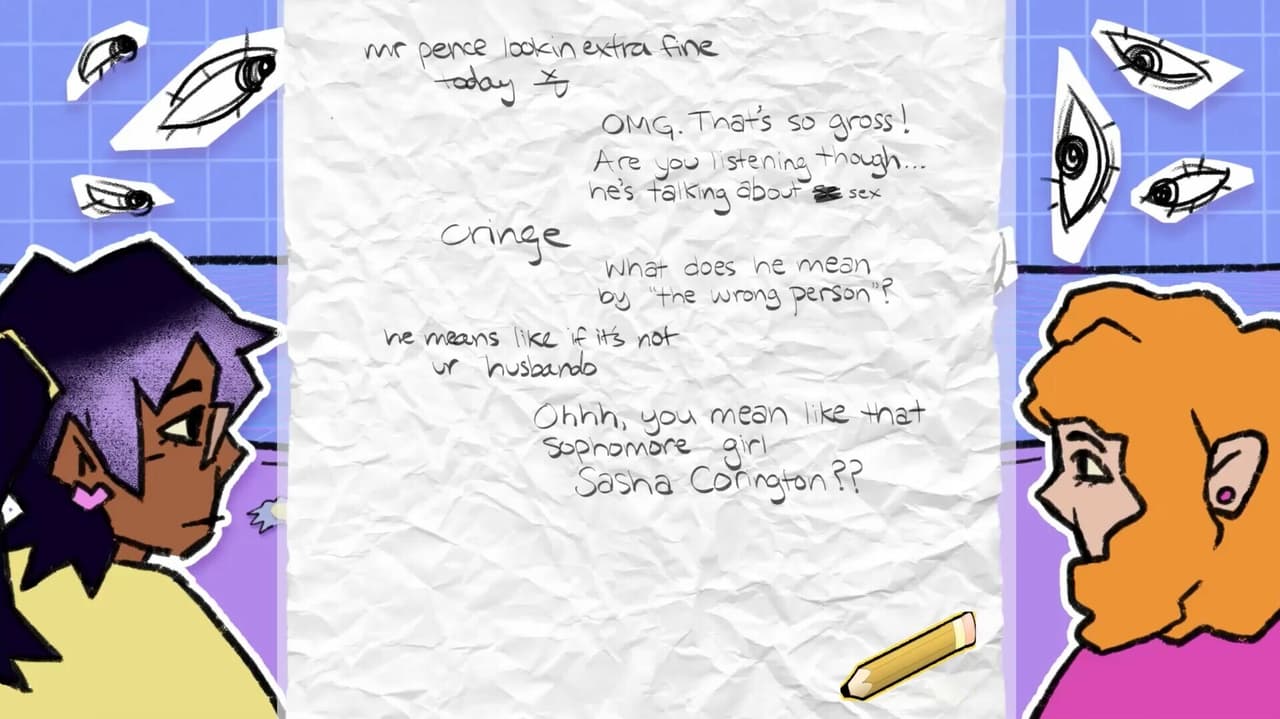 mr pence lookin extra fine
today
OMG. That's so gross!
Are you listening though...
he's talking about sex
cringe
What does he mean
by "the wrong person"?
he means like if it's not
ur husbando
Ohhh, you mean like that
sophomore girl
Sasha Conington??